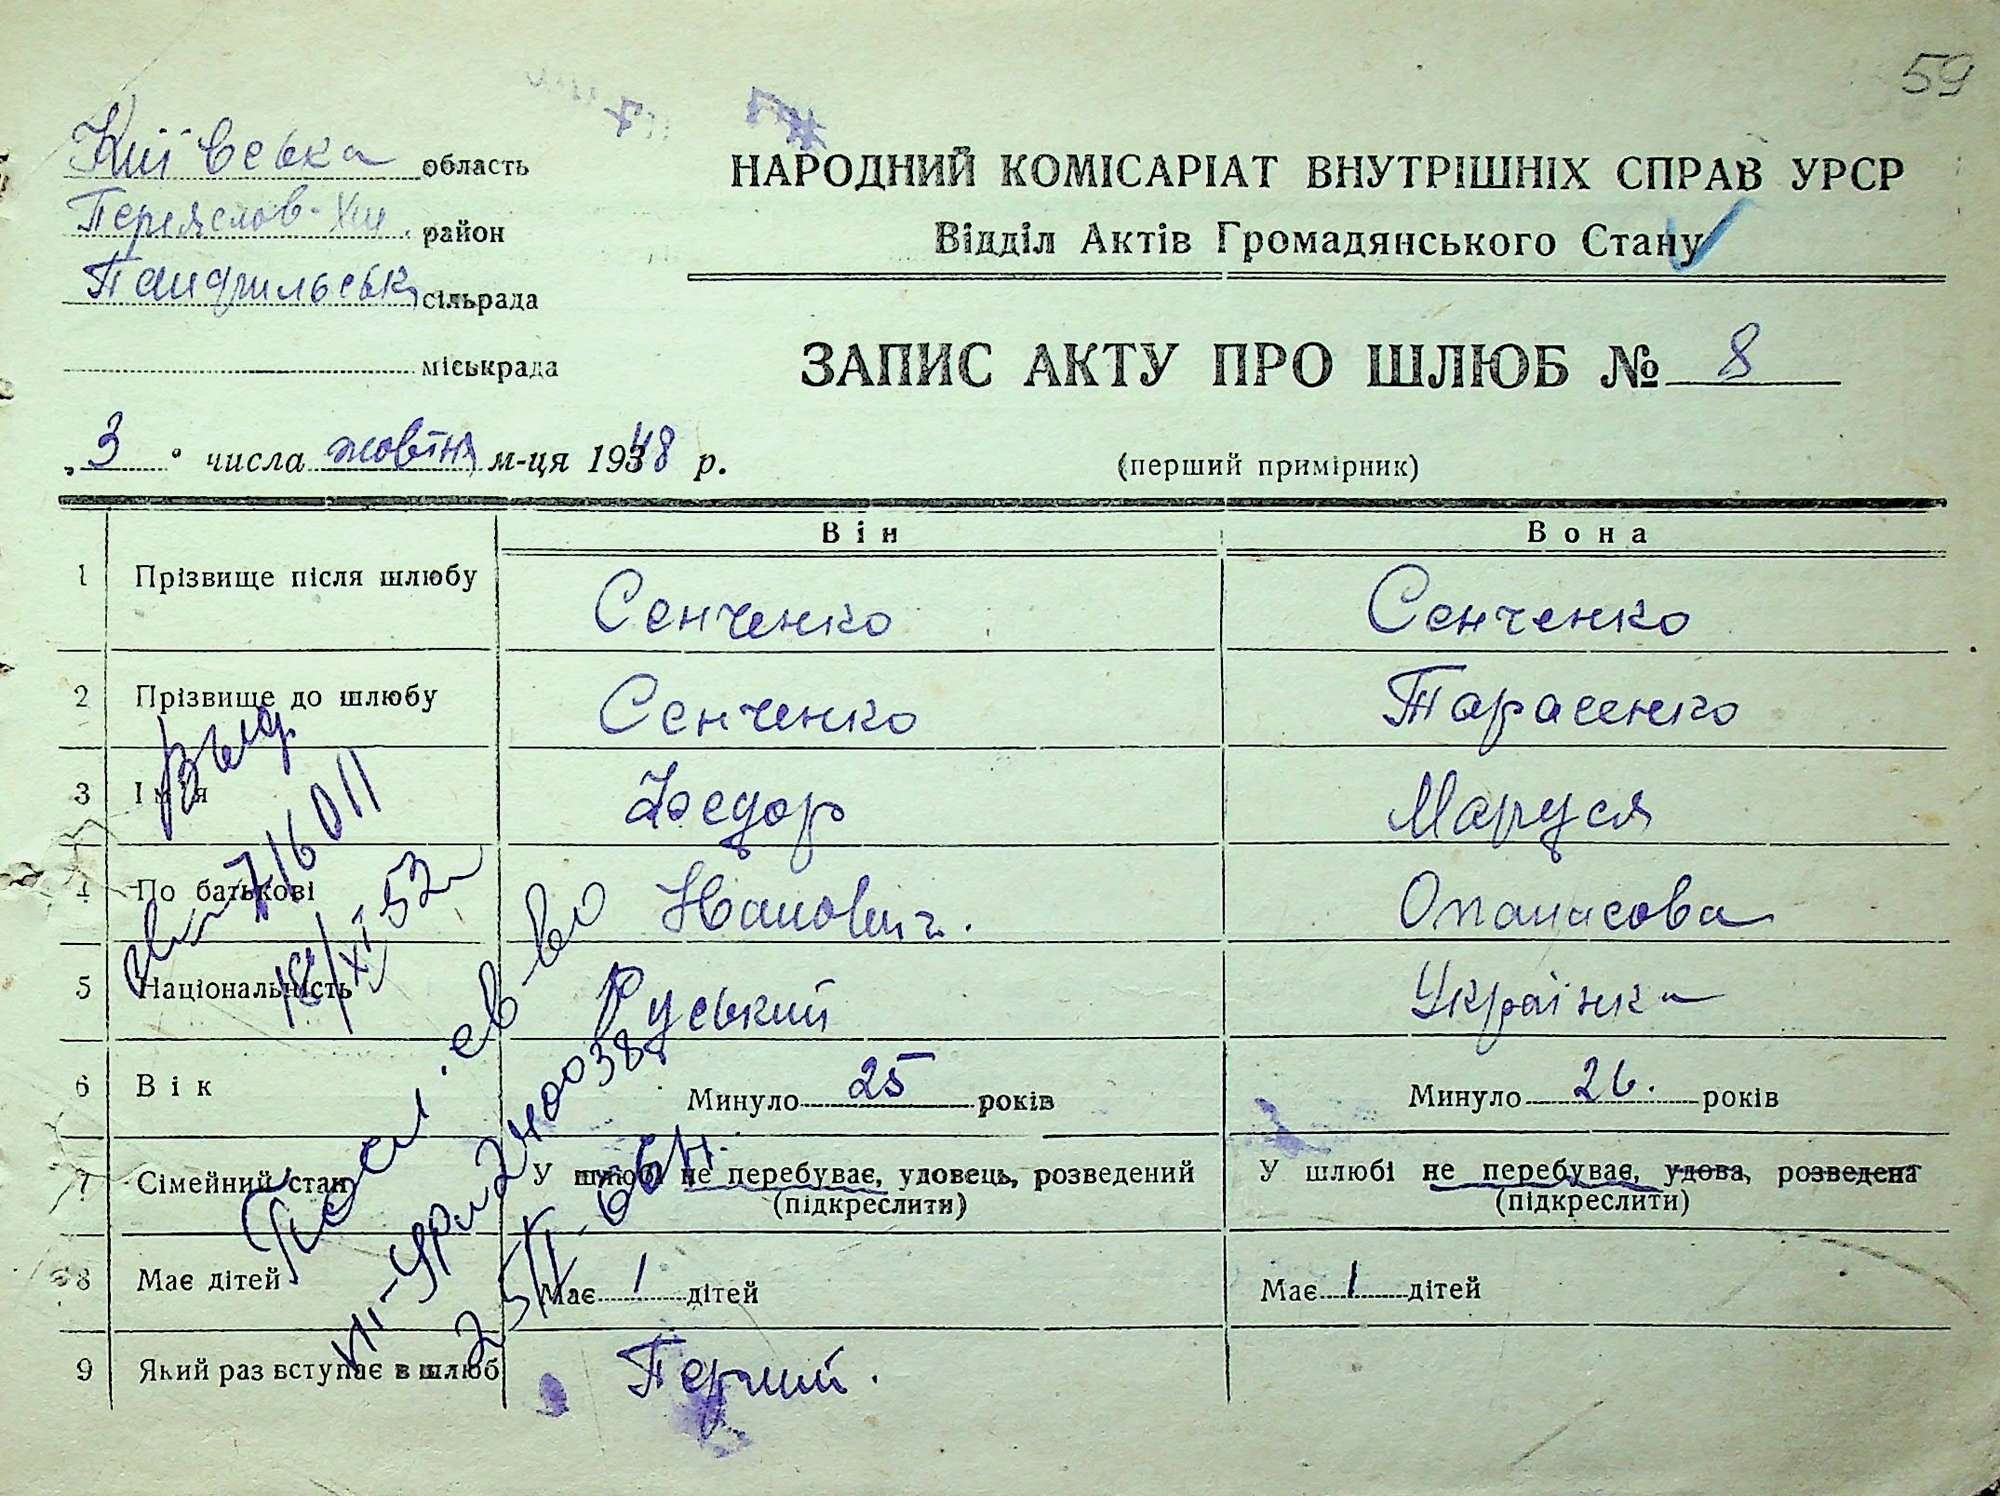 59
Київська область
Переяслов-Хм. район
сільрада
міськрада
НАРОДНИЙ КОМІСАРІАТ ВНУТРІШНІХ СПРАВ УРСР
Відділ Актів Громадянського Стану
ЗАПИС АКТУ ПРО ШЛЮБ № 8
„3“ числа жовтня м-ця 1948 р.
(перший примірник)
Він Вона
1 Прізвище після шлюбу Сенченко Сенченко
2 Прізвище до шлюбу Сенченко Тарасенко
3 Ім'я Федор Маруся
4 По батькові Іванович. Опанасова
5 Національність Руський Українка
6 Вік Минуло 25 років Минуло 26. років
7 Сімейний стан У шлюбі не перебуває, удовець, розведений (підкреслити) У шлюбі не перебуває, удова, розведена (підкреслити)
8 Має дітей Має 1 дітей Має 1 дітей
9 Який раз вступає в шлюб Перший.
Выд.
716011
18/XI 52